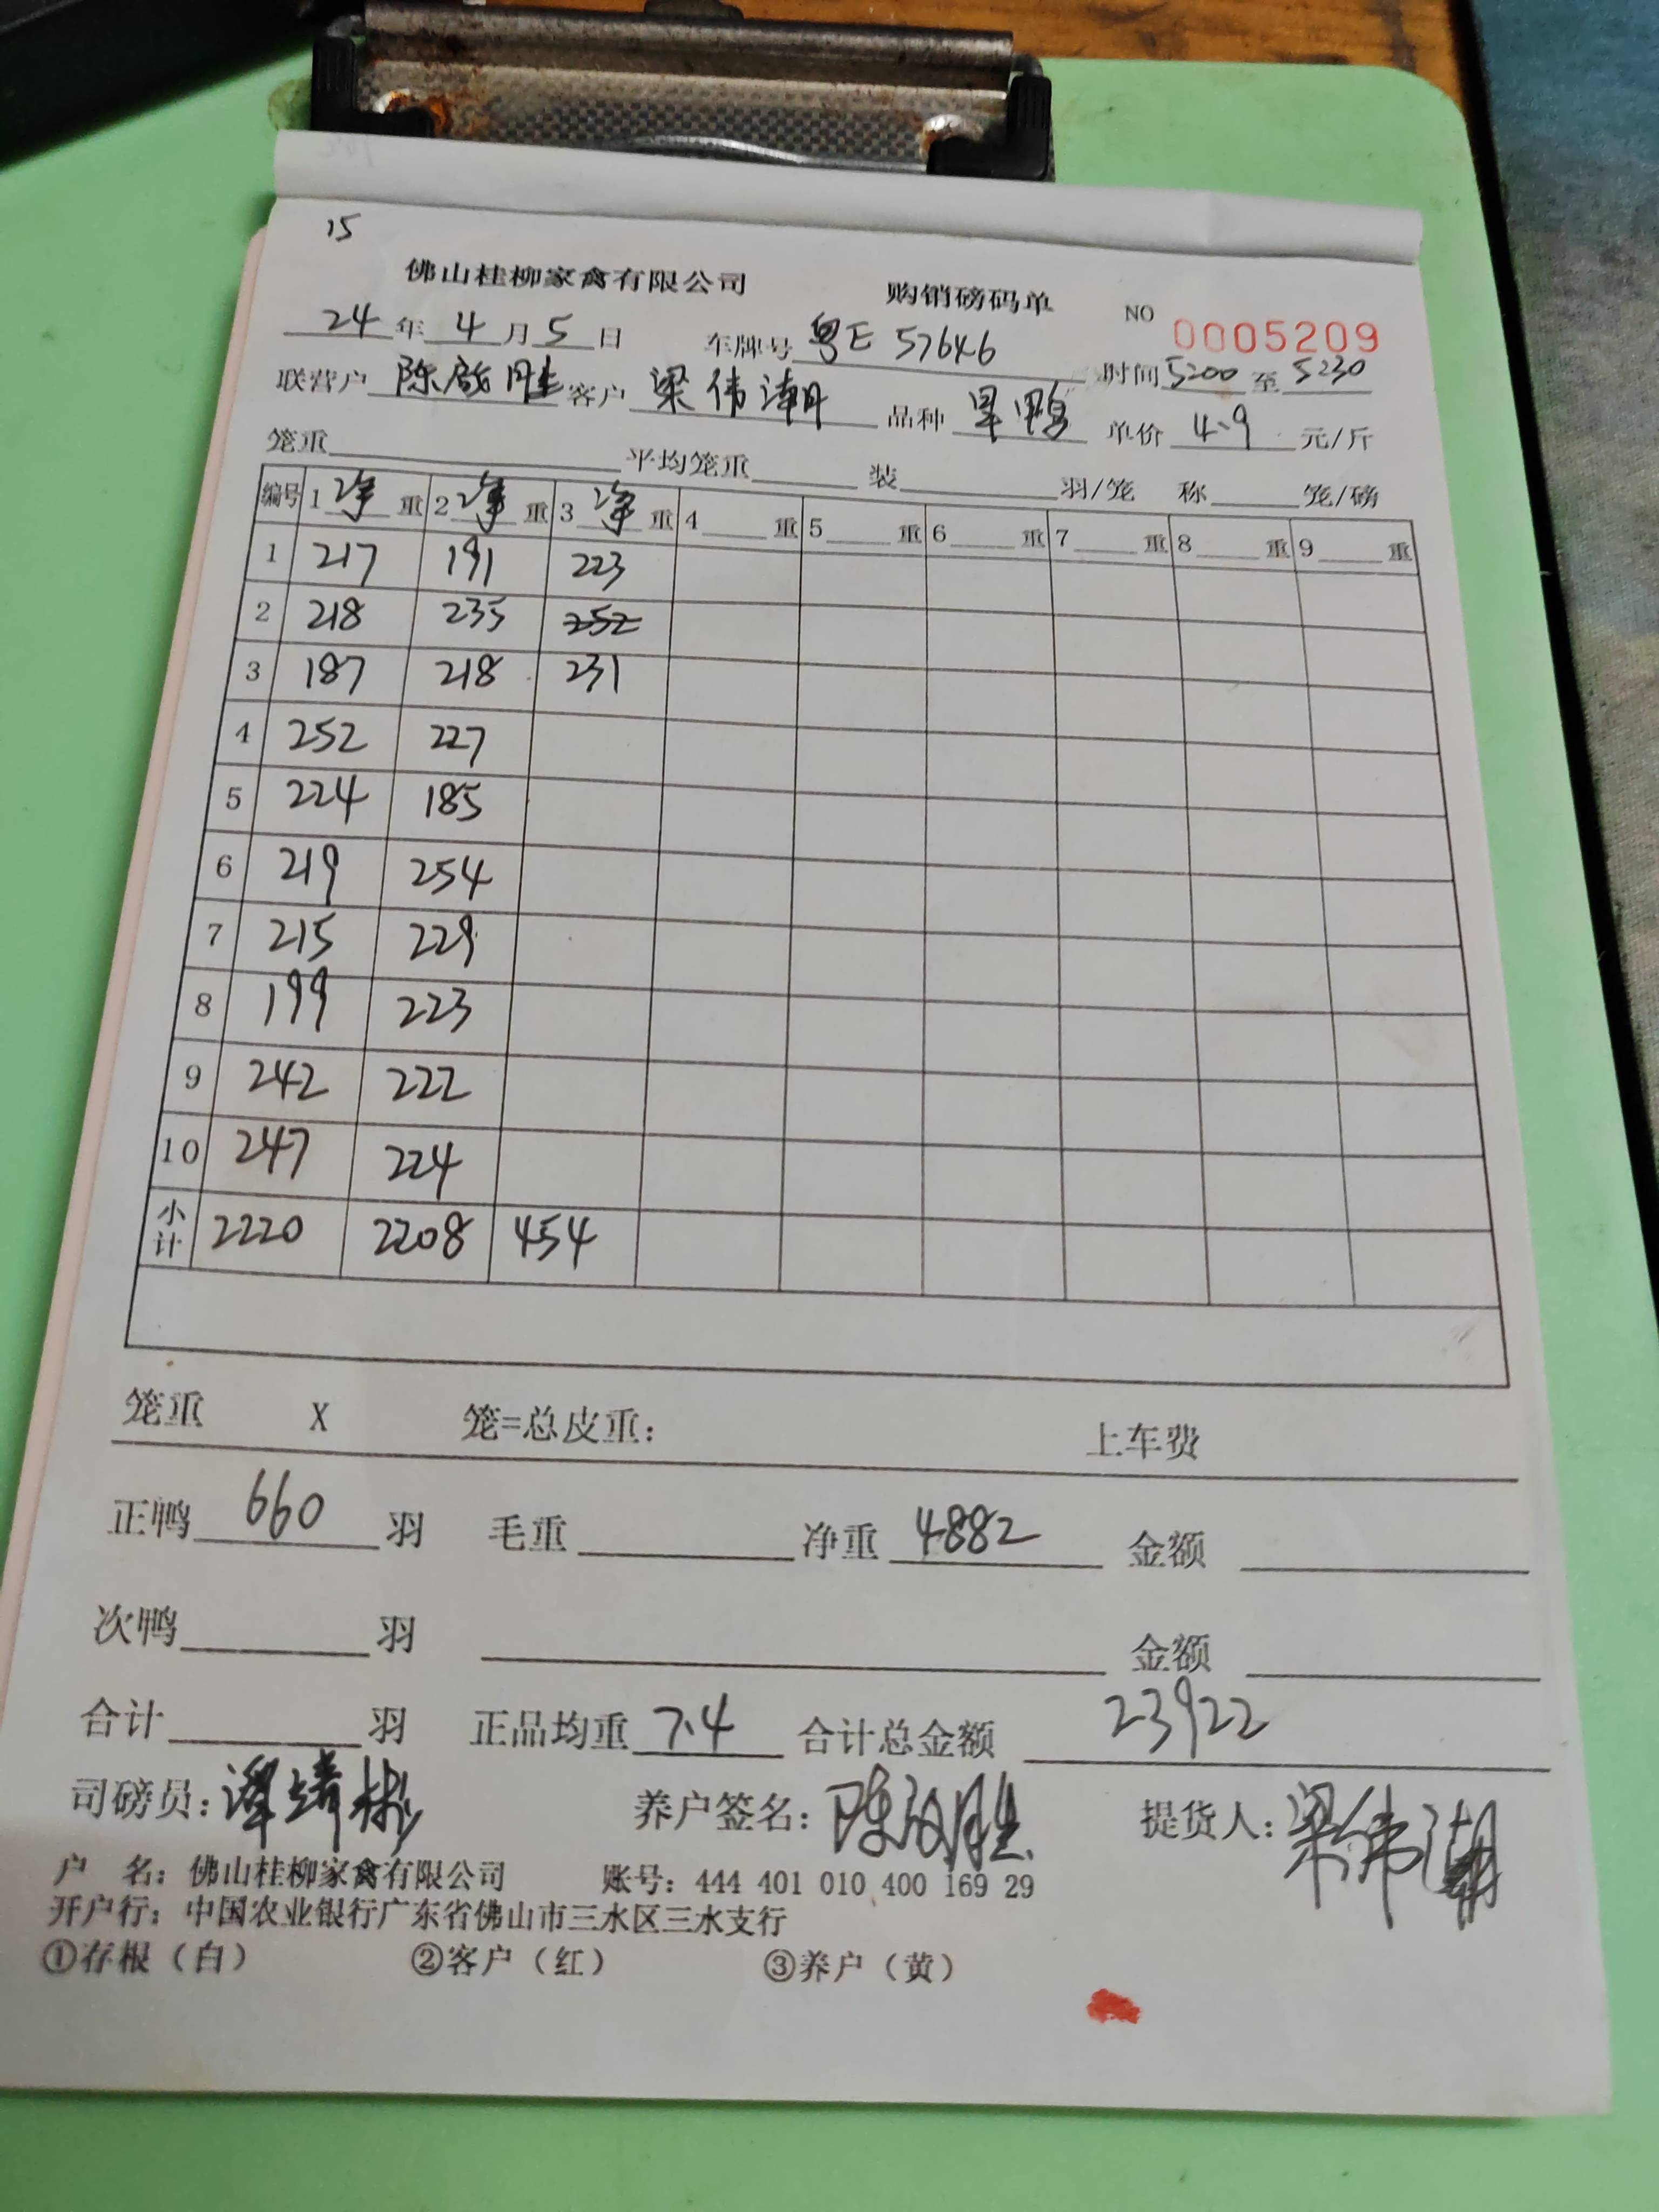 15
佛山桂柳家禽有限公司 购销磅码单 NO 0005209
24年4月5日 车牌号粤E 57646 时间5200至5230
联营户陈啟胜 客户梁伟潮 品种旱鸭 单价4.9元/斤
笼重 平均笼重 装 羽/笼 称 笼/磅
编号 1净重 2净重 3净重 4 重 5 重 6 重 7 重 8 重 9 重
1 217 191 223
2 218 235 252
3 187 218 231
4 252 227
5 224 185
6 219 254
7 215 229
8 199 223
9 242 222
10 247 224
小计 2220 2208 454
笼重 X 笼=总皮重: 上车费
正鸭660羽 毛重 净重4882 金额
次鸭 羽 金额
合计 羽 正品均重7.4 合计总金额 23922
司磅员: 养户签名:陈啟胜 提货人:梁伟潮
户 名: 佛山桂柳家禽有限公司 账号: 444 401 010 400 169 29
开户行: 中国农业银行广东省佛山市三水区三水支行
①存根（白） ②客户（红） ③养户（黄）